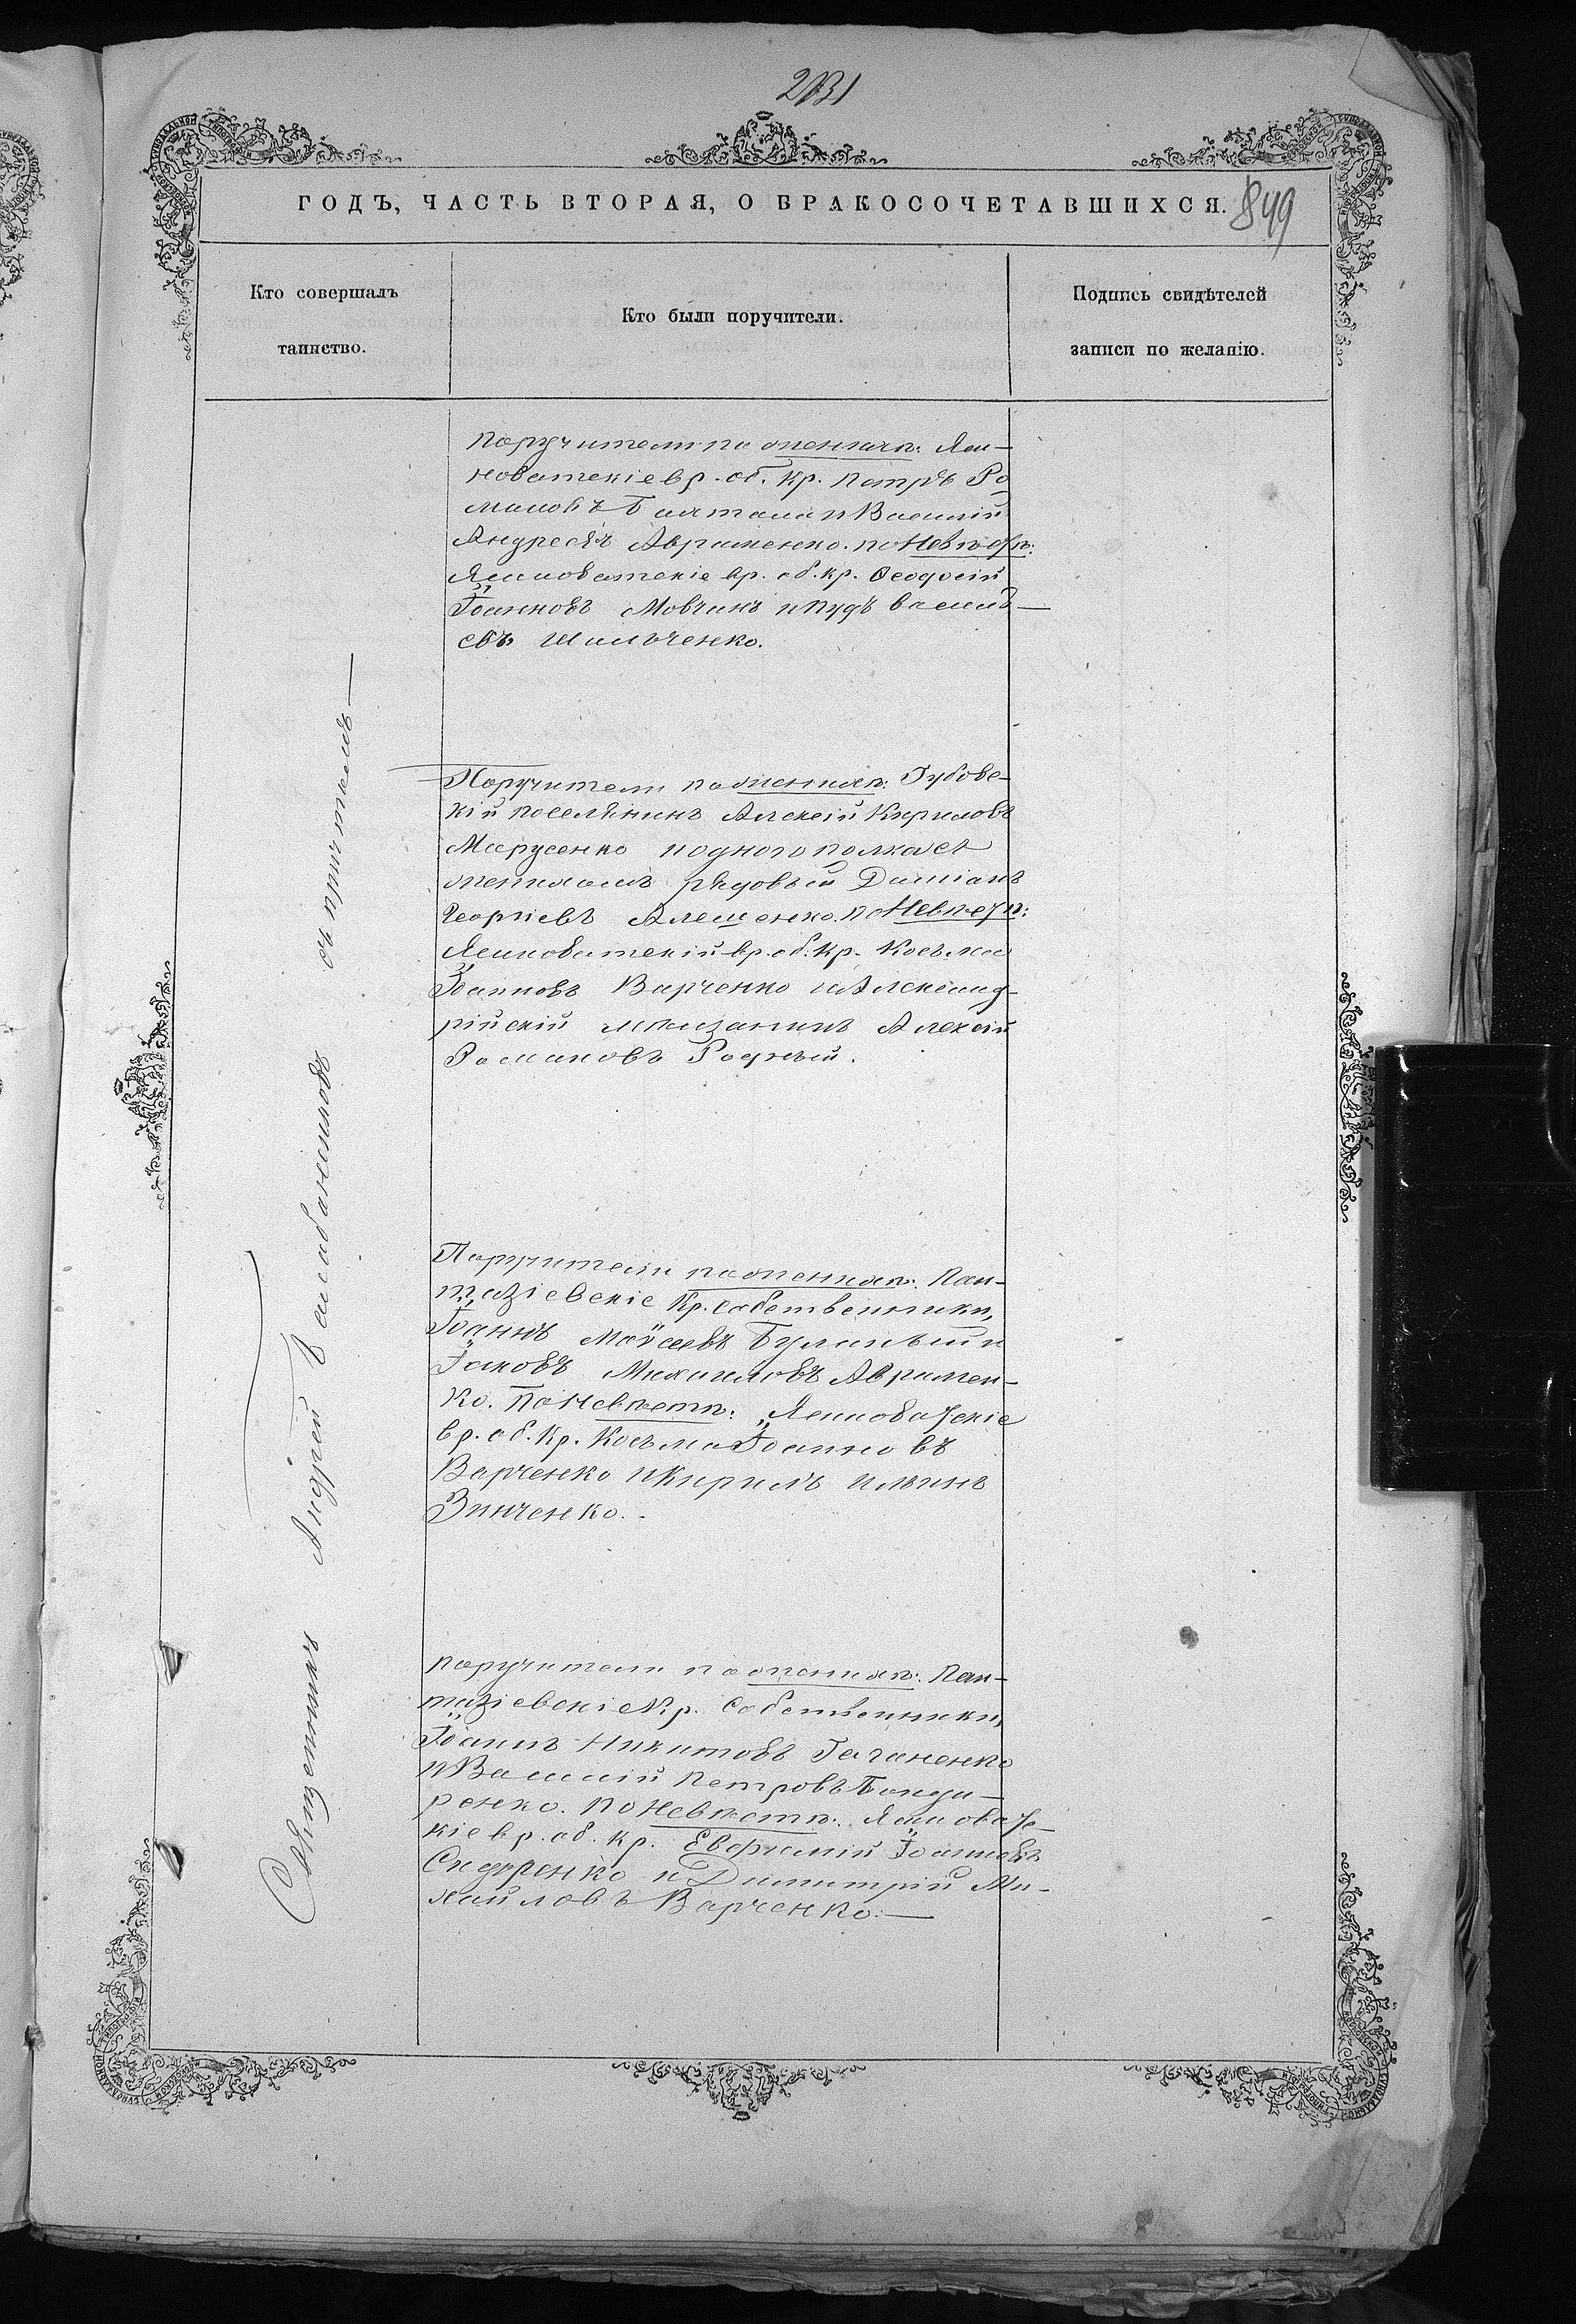 231
ГОДЪ, ЧАСТЬ ВТОРАЯ, О БРАКОСОЧЕТАВШИХСЯ.
849
Кто совершалъ
таинство.
Кто были поручители.
Подпись свидѣтелей
записи по желанію.
Священникъ Андрей съ причтомъ
поручители по женихѣ: Яси-
новатскіе вр. об. кр. Петръ Ро
мановъ Балтаца и Василій
Андреевъ Авраменко. по Невѣстѣ:
Ясиноватскіе вр. об. кр. Ѳеодосій
Іоанновъ Мовчанъ и Іудъ Василь-
евъ Шильченко.
Поручители по женихѣ: Губовс-
кій поселянинъ Алексій Кириловъ
Марусенко и одного полка съ
женихомъ рядовый Даміанъ
Георгіевъ Алешенко. по Невѣстѣ:
Ясиноватскій вр. об. кр. Косьма
Іоанновъ Варченко и Александ-
рійскій мѣщанинъ Алексій
Романовъ Родный.
Поручители по женихѣ: Пан-
тазіевскіе Кр. собственники,
Іоаннъ Моѵсеевъ Буланый и
Іаковъ Михаиловъ Авримен-
ко. По Невѣстѣ: Ясиноватскіе
вр. об. Кр. Косьма Іоанновъ
Варченко и Кирилъ Ильинъ
Зинченко.
поручители по женихѣ: Пан-
тазіевскіе Кр. Собственники,
Іоаннъ Никитовъ Гаганенко
и Василій Петровъ Бонда-
ренко. По Невѣстѣ: Ясиноватс-
кіе вр. об. кр. Евфимій Іоанновъ
Сидоренко и Димитрій Ми-
хайловъ Варченко.